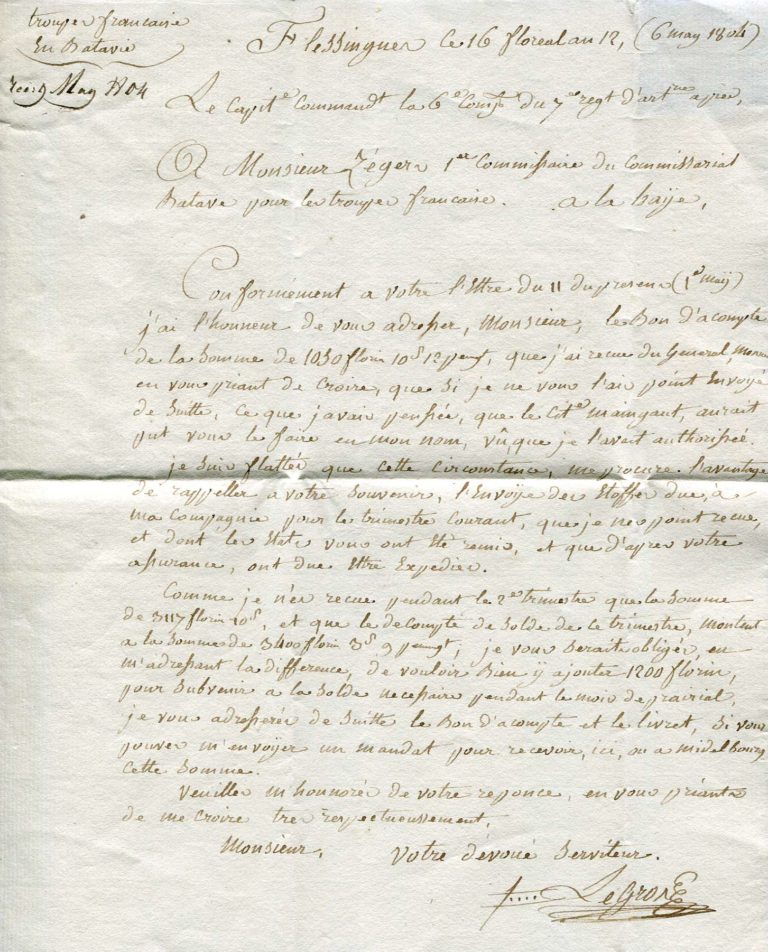 trouppes francaise
En Batavie
Flessingues ce 16 floreal an 12, (6 may 1804)
rec: 9 May 1804
Le Capit.e Command.t la 6.e Comp.e du 7.e regt d'art.rie a pied,
A Monsieur Zegers 1.er Commissaire du Commissariat
Batave pour les trouppes francaise. a la haije,
Conformément a votre l'Ettre du 11 du presens (1.er maij)
j'ai l'honneur de vous adresser, Monsieur, le Bon d'acompte
de la Somme de 1030 florins 10.s 12 penf, que j'ai recue du General,
en vous priant de Croire, que Si je ne vous l'ai point Envoyé
de Suitte, ce que j'avais pensée, que le Cit.e maingaut, aurait
put vous le faire en mon nom, vû que je l'avait authorissée.
je Suis flattée que cette circonstance, me procure l'avantage
de rappeller a votre Souvenir, l'Envoÿe des Etoffes due, à
ma Compagnie pour le trimestre Courant, que je nes point recue,
et dont les Etats vous ont Eté remis, et que d'apres votre
assurance, ont due Ettre Expedier.
Comme je n'es recue pendant le 2.e trimestre que la Somme
de 3117 florins 10.s, et que le decompte de Solde de ce trimestre, montent
a la Somme de 3400 florins 3.s 9 penngt, je vous Serait obligér, en
m'adressant la difference, de vouloir Bien ÿ ajouter 1200 florins,
pour Subvenir a la Solde necessaire pendant le mois de prairial,
je vous adresserée de Suitte le Bon d'acompte et le livret, Si vous
pouvez m'envoyer un mandat pour recevoir, ici, ou a midelbourg
cette Somme.
Veuillez m'honnorée de votre reponce, en vous priants
de me Croire tres respectueussement,
Monsieur, Votre dévoué Serviteur.
LeGros